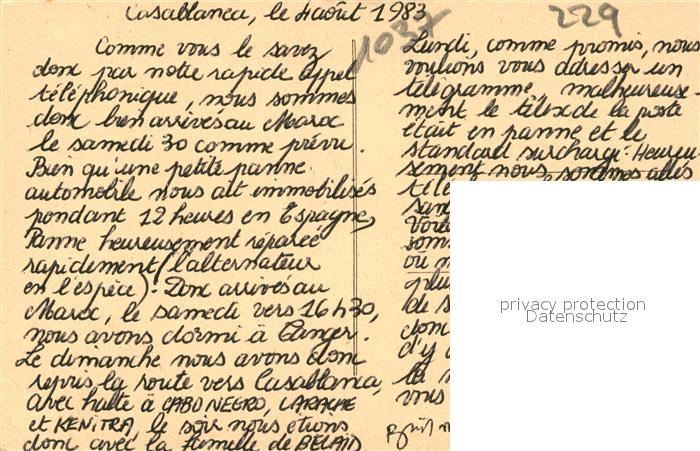 Casablanca, le 4 août 1983
1037
229
Comme vous le savez
donc par notre rapide appel
téléphonique, nous sommes
donc bien arrivés au Maroc
le samedi 30 comme prévu.
Bien qu'une petite panne
automobile nous ait immobilisés
pendant 12 heures en Espagne,
Panne heureusement réparée
rapidement (l'alternateur
en l'espèce). Donc arrivés au
Maroc, le samedi vers 16 h 30,
nous avons dormi à Tanger.
Le dimanche nous avons donc
repris la route vers Casablanca,
avec halte à CABO NEGRO, LARACHE
et KENITRA, le soir nous étions
donc avec la famille de BELAID
Lundi, comme promis, nous
voulions vous adresser un
télégramme, malheureuse-
ment le télex de la poste
était en panne et le
standard surchargé. Heureu-
sement nous sommes allés
télé
sans
Voilà
som
où n
plu
de s
donc
d'y
la
vous
privacy protection
Datenschutz